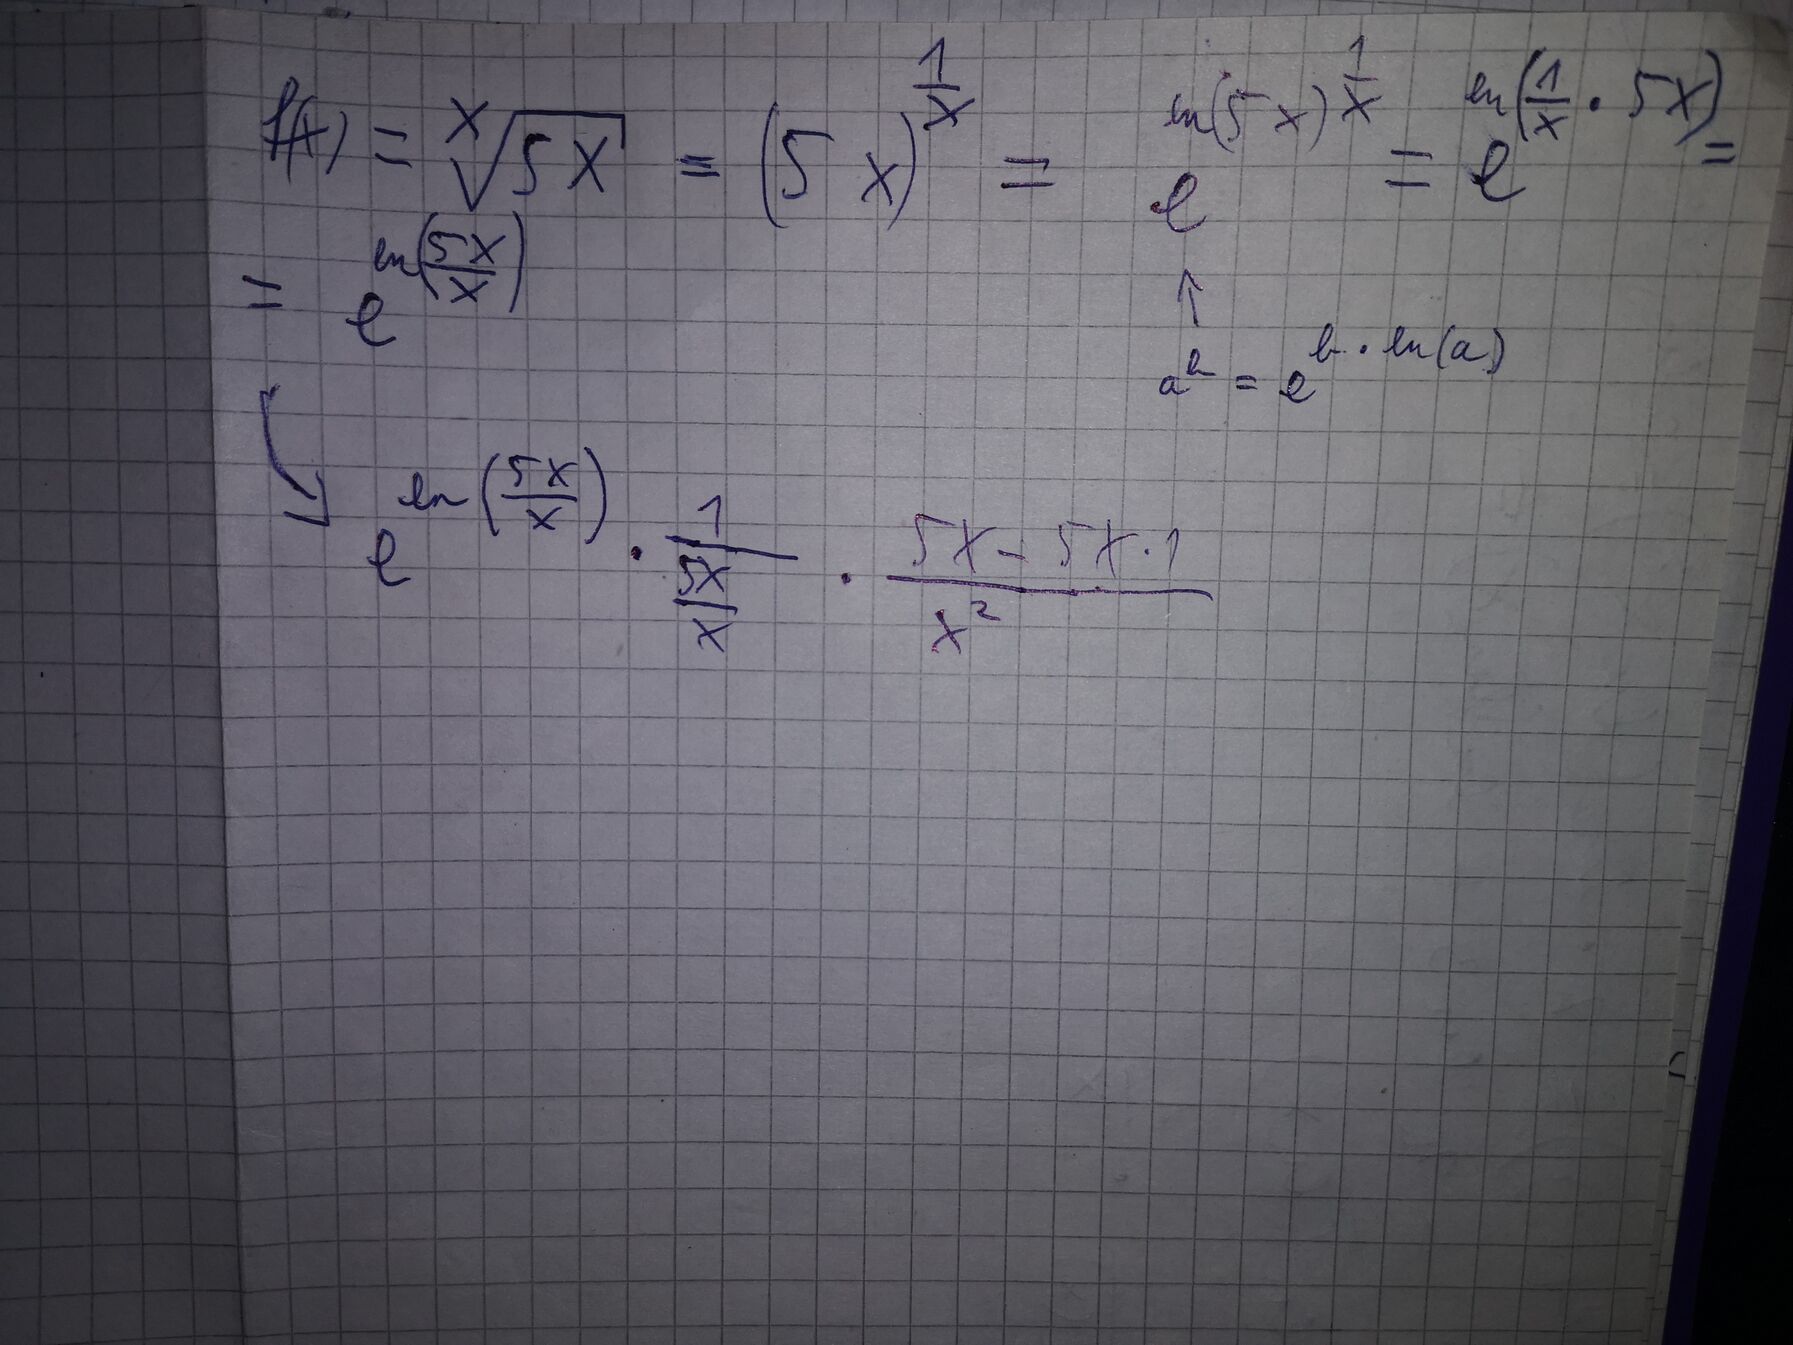 f(x) = ˣ√(5x) = (5x)^(1/x) = e^(ln(5x)^(1/x)) = e^(ln(1/x · 5x)) =
= e^(ln(5x/x))
↑
a^b = e^(b · ln(a))
e^(ln(5x/x)) · 1/(5x/x) · (5x - 5x · 1)/x²